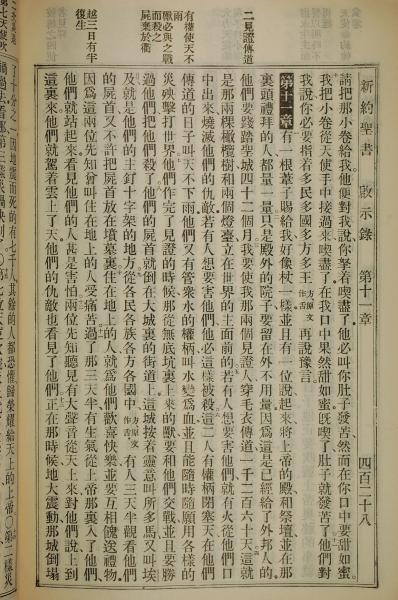 新約聖書　啟示錄　第十一章　四百二十八
請把那小卷給我他便對我說你拏着喫盡了他必叫你肚子發苦然而在你口中要甜如蜜
我把小卷從天使手中接過來喫盡了在我口中果然甜如蜜旣喫了肚子就發苦了他們對
我說你必要指着多民多國多方多王 方原文作舌 再說豫言
第十一章 有一根葦子賜給我好像杖一樣並且有一位說起來將上帝的殿和祭壇並在那
裏頭禮拜的人都量一量只是殿外的院子要留在外不用量因爲這是已經給了外邦人的
他們要踐踏聖城四十二個月我要使我那兩個見證人穿毛衣傳道一千二百六十天這就
是那兩棵橄欖樹和兩個燈臺立在世界的主面前的若有人想要害他們就有火從他們口
中出來燒滅他們的仇敵若有人想要害他們他必這樣被殺這二人有權柄閉塞天在他們
傳道的日子叫天不下雨他們又有管衆水的權柄叫水變爲血並且能隨時隨願用各樣的
災殃擊打世界他們作完了見證的時候那從無底坑裏上來的獸要和他們交戰並且要勝
過他們把他們殺了他們的屍首就倒在大城裏的街道上這城按着靈意叫所多馬又叫埃
及就是他們的主釘十字架的地方從各民各族各方各國中 方原文作舌 有人三天半觀看他們
的屍首又不許把屍首放在墳墓裏住在地上的人就爲他們歡喜快樂並要互相餽送禮物
因爲這兩位先知曾叫住在地上的人受痛苦過了那三天半有生氣從上帝那裏入了他們
他們就站起來看見他們的人甚是害怕兩位先知聽見有大聲音從天上來對他們說上到
這裏來他們就駕着雲上了天他們的仇敵也看見了他們正在那時候地大震動那城倒塌
二見證傳道
有權使天不雨
獸必與之戰而殺之
屍棄於衢
越三日有半復生